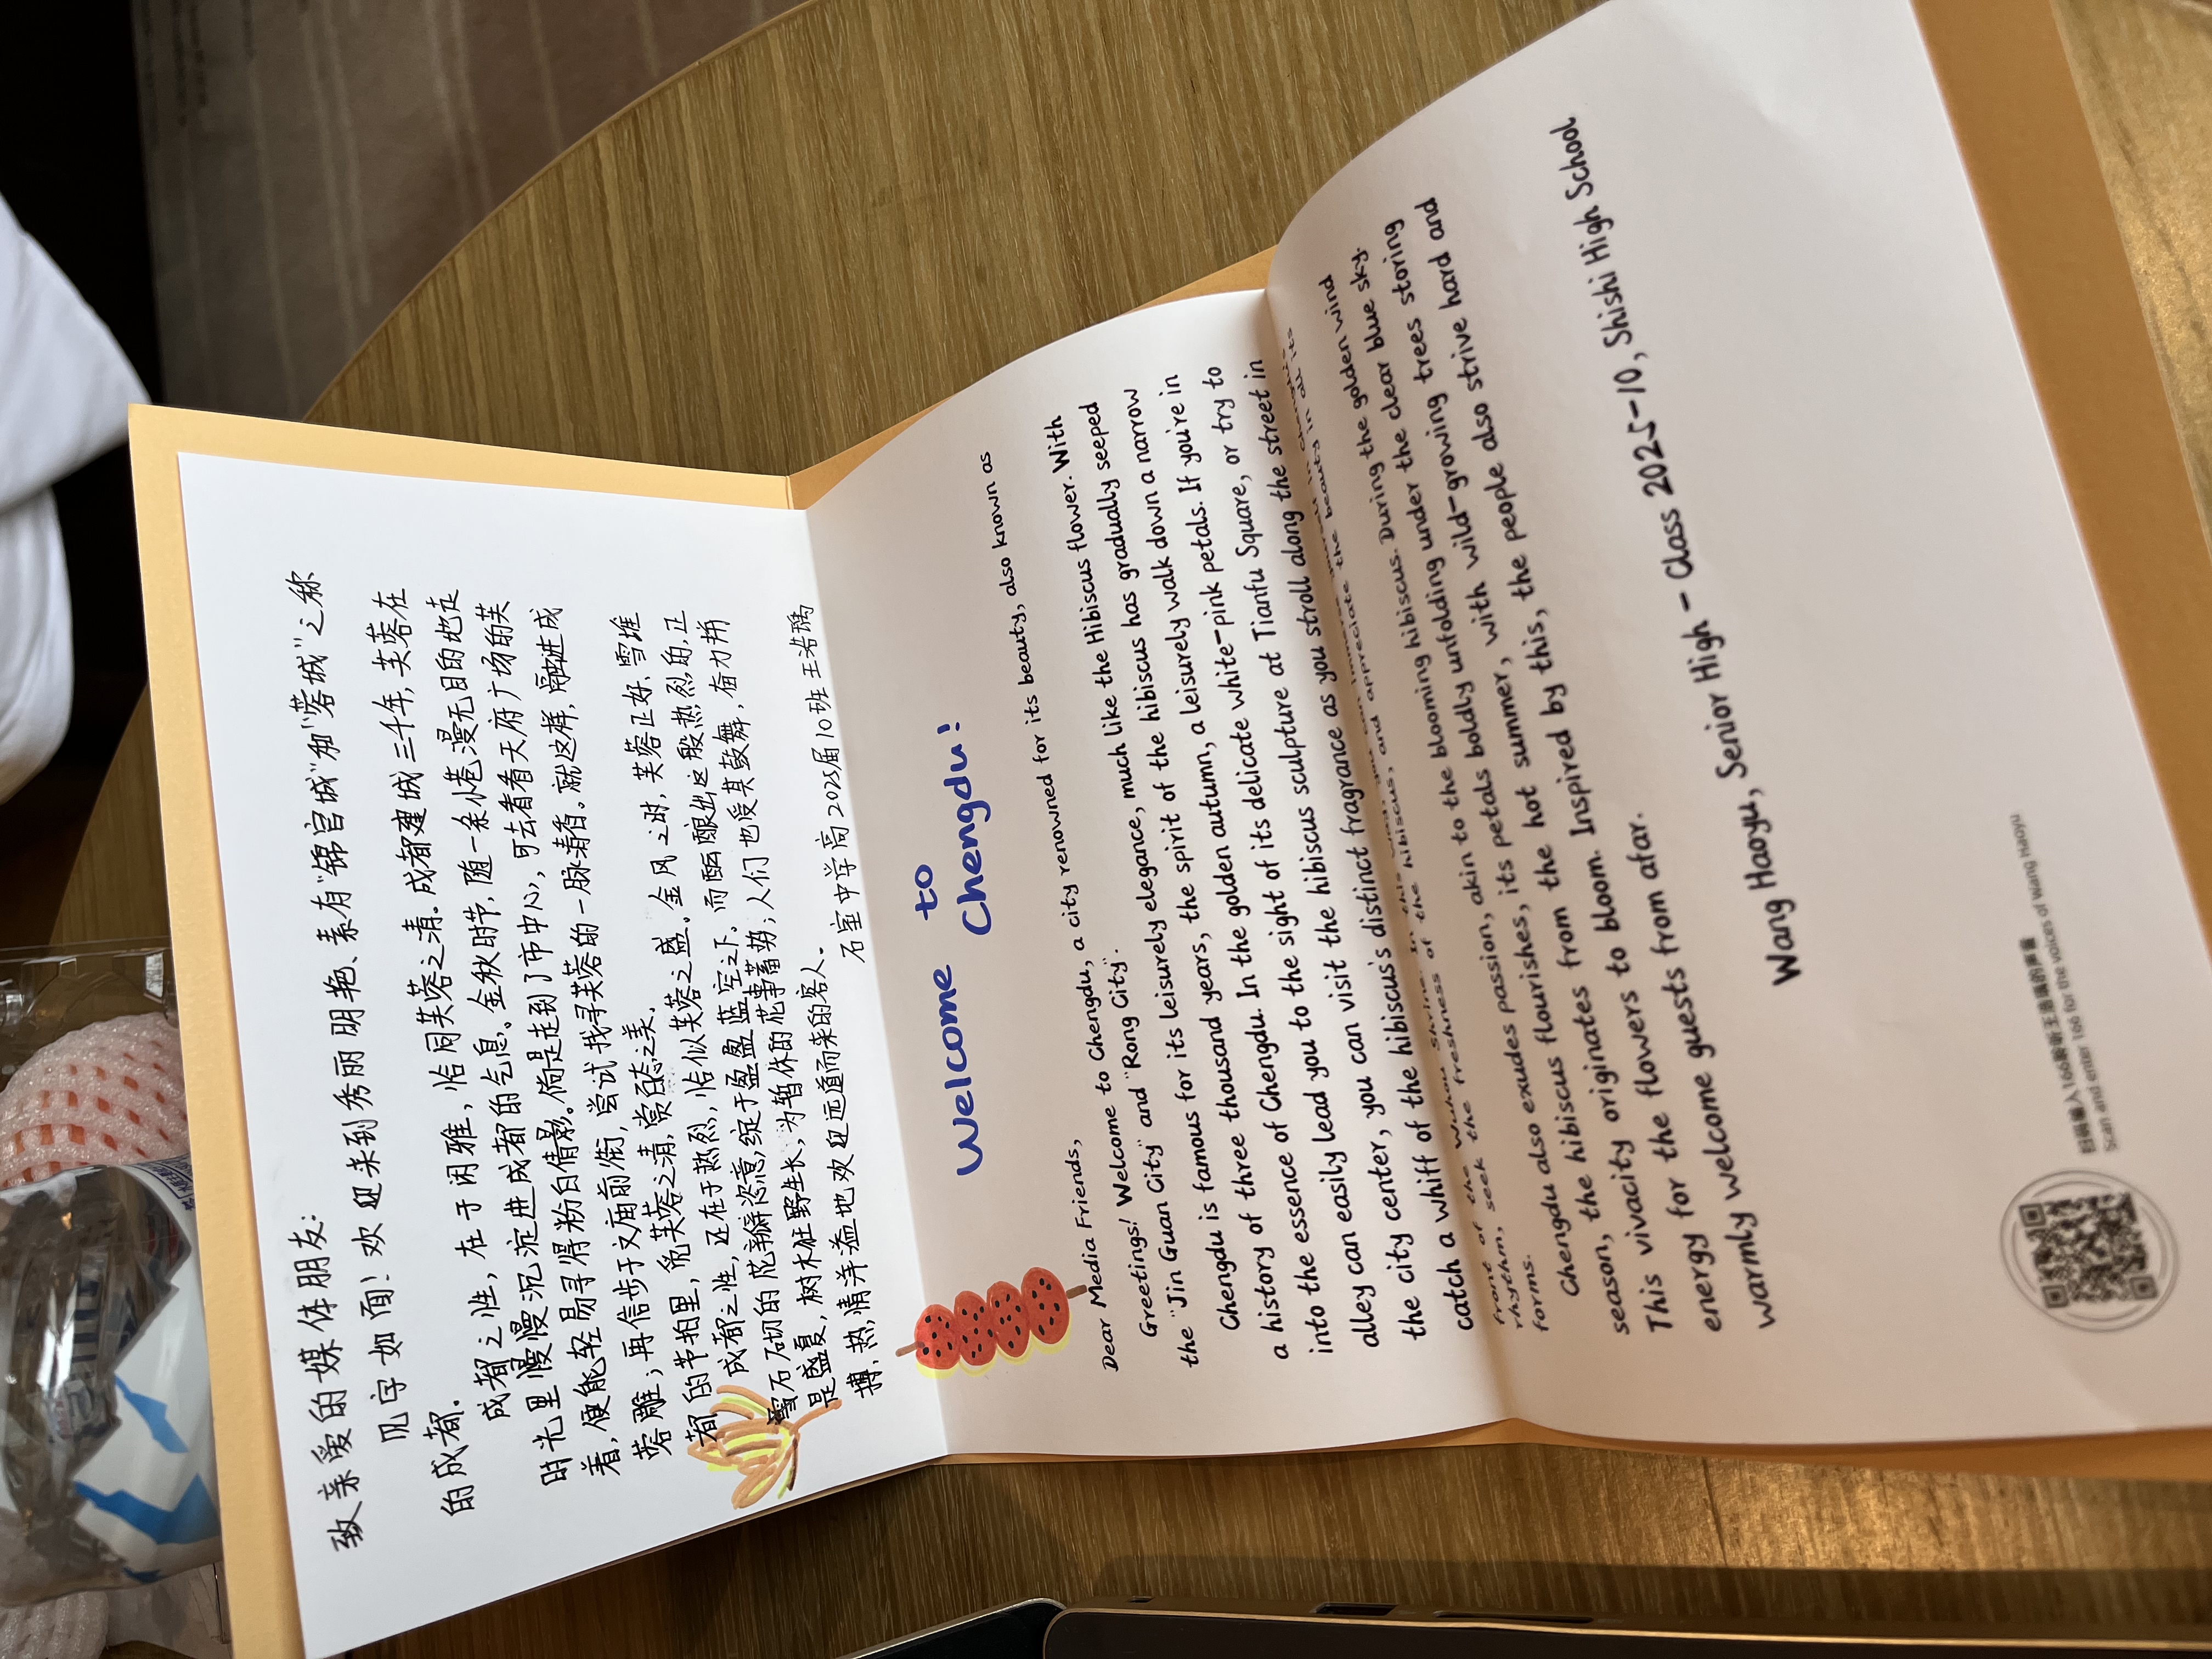 致亲爱的媒体朋友：
见字如面！欢迎来到秀丽明艳、素有“锦官城”和“蓉城”之称
的成都。
成都之性，在于闲雅，恰同芙蓉之清。成都建城三千年，芙蓉在
时光里慢慢沉淀进成都的气息。金秋时节，随一条小巷漫无目的地走
着，便能轻易寻得粉白倩影。倘是走到了市中心，可去看看天府广场的芙
蓉雕；再信步于文庙前街，尝试找寻芙蓉的一脉清香。就这样，融进成
都的节拍里，觅芙蓉之清，赏百态之美。
成都之性，还在于热烈，恰似芙蓉之盛。金风之时，芙蓉正好、雪堆
雪石砌的花瓣恣意绽于盈盈蓝空之下。而酝酿出这般热烈的，正
是盛夏，树木狂野生长，为暂休的花事蓄势；人们也受其鼓舞，奋力拼
搏，热情洋溢地欢迎远道而来的客人。
石室中学高2025届10班 王浩瑀
Welcome to
Chengdu!
Dear Media Friends,
Greetings! Welcome to Chengdu, a city renowned for its beauty, also known as
the "Jin Guan City" and "Rong City".
Chengdu is famous for its leisurely elegance, much like the Hibiscus flower. With
a history of three thousand years, the spirit of the hibiscus has gradually seeped
into the essence of Chengdu. In the golden autumn, a leisurely walk down a narrow
alley can easily lead you to the sight of its delicate white-pink petals. If you're in
the city center, you can visit the hibiscus sculpture at Tianfu Square, or try to
catch a whiff of the hibiscus's distinct fragrance as you stroll along the street in
front of the Wuhou Shrine. In this way, you can immerse yourself in Chengdu's
rhythm, seek the freshness of the hibiscus, and appreciate the beauty in all its
forms.
Chengdu also exudes passion, akin to the blooming hibiscus. During the golden wind
season, the hibiscus flourishes, its petals boldly unfolding under the clear blue sky.
This vivacity originates from the hot summer, with wild-growing trees storing
energy for the flowers to bloom. Inspired by this, the people also strive hard and
warmly welcome guests from afar.
Wang Haoyu, Senior High - Class 2025-10, Shishi High School
扫码输入166聆听王浩瑀的声音
Scan and enter 166 for the voices of Wang Haoyu